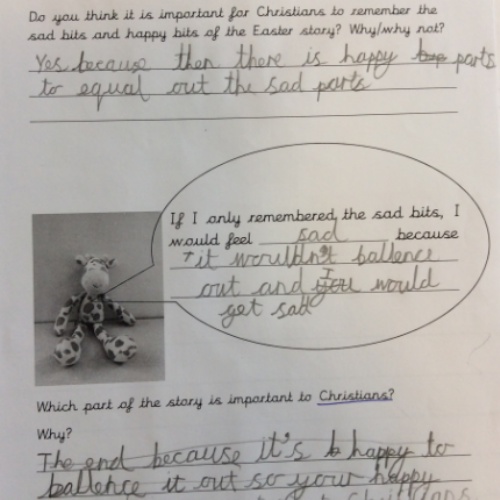 Do you think it is important for Christians to remember the
sad bits and happy bits of the Easter story? Why/why not?
Yes because then there is happy parts
to equal out the sad parts
If I only remembered the sad bits, I
would feel sad because
it wouldn't ballence
out and I would
get sad
Which part of the story is important to Christians?
Why?
The end because it's happy to
ballence it out so your happy
Christians